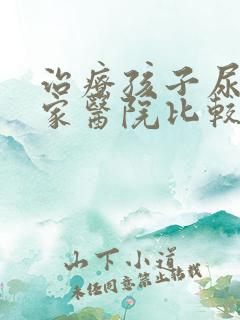 治疗孩子尿
家醫院比較
山下小道
未经同意禁止转载